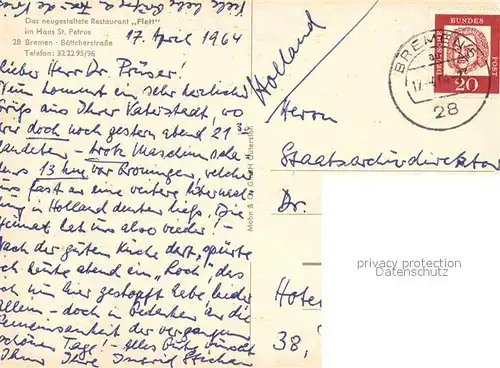 Das neugestaltete Restaurant „Flett"
im Haus St. Petrus
28 Bremen · Böttcherstraße
Telefon: 32 22 95/96
17. April 1964
Lieber Herr Dr. Prüser!
Nun kommt ein sehr herzlicher
Gruß aus Ihrer Vaterstadt, wo
wir doch noch gestern abend 21
landeten – trotz Maschinenscha-
dens 13 km vor Groningen, welche
uns fast an eine weitere
in Holland denken ließ. Die
Heimat hat uns also wieder! –
Nach der guten Küche dort, spürte
ich heute abend ein „Loch", das
ich nun hier gestopft habe, leider
allein – doch in Gedanken an die
Gemeinsamkeit der vergangenen
schönen Tage! – Alles Gute wünscht
Ihnen Ihre Ingrid
Mohn & Co GmbH Gütersloh
Holland
DEUTSCHE BUNDESPOST
20
BREMEN
28
Herrn
Staatsarchivdirektor
Dr.
Hote
38,
privacy protection
Datenschutz